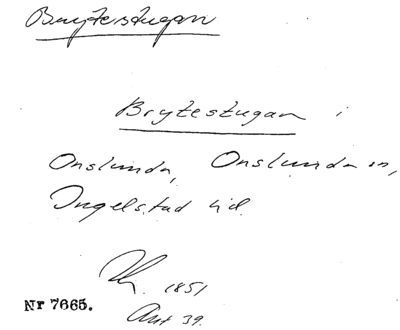 Brytestugan
Brytestugan i
Onslunda, Onslunda sn,
Ingelstad hd.
1851
Nr 7665.
Avt 39.